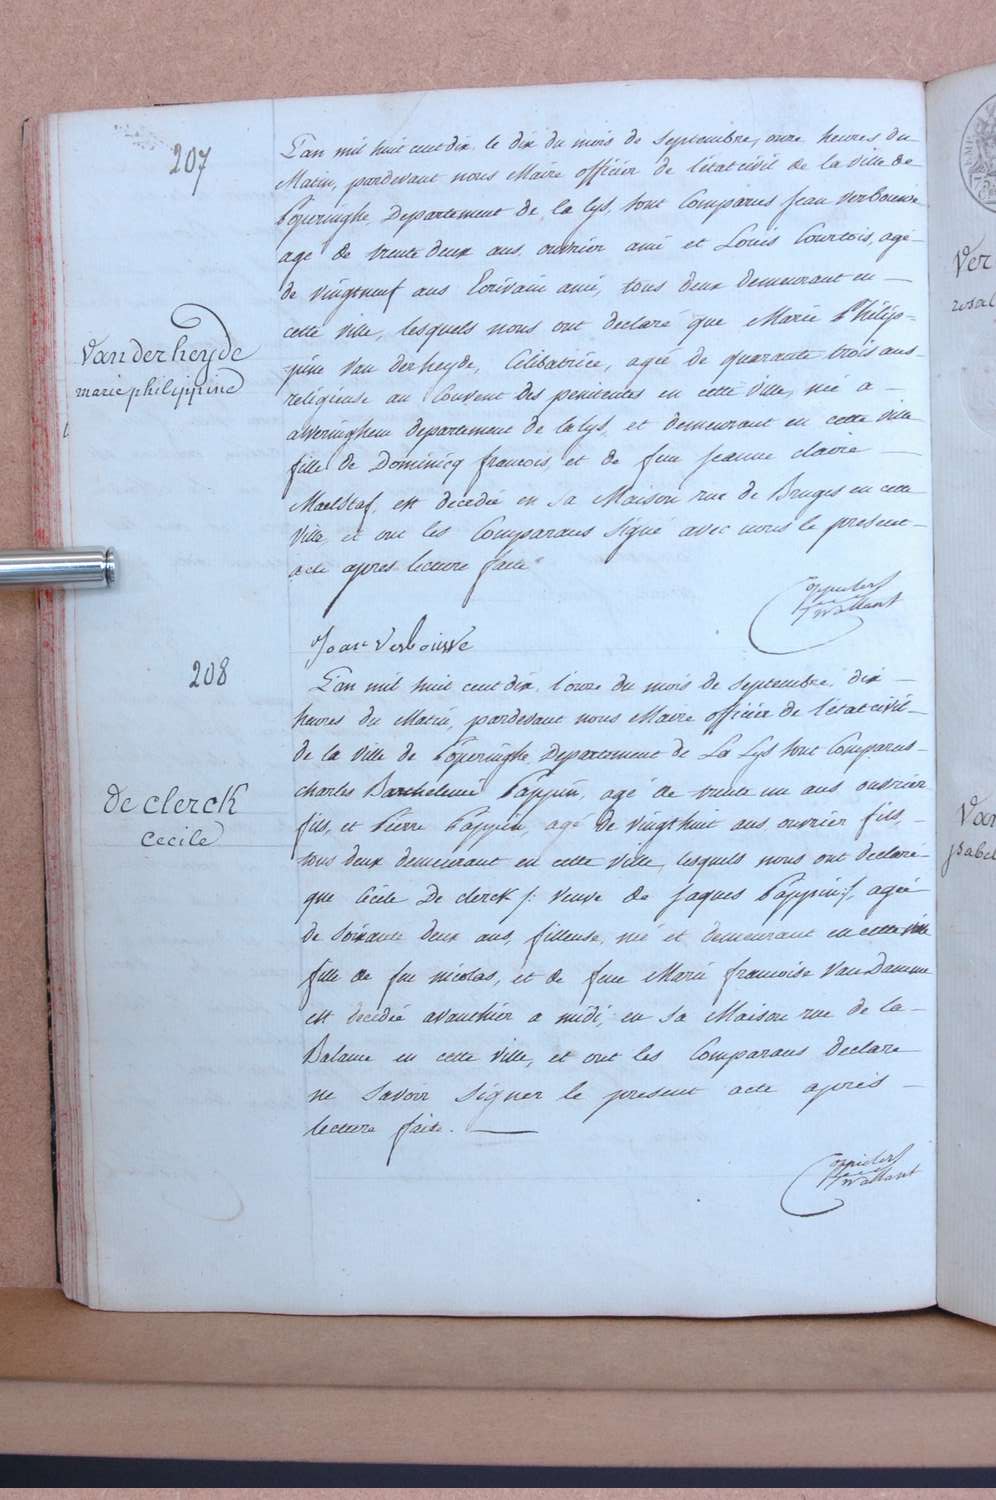 207
L'an mil huit cent dix, le dix du mois de septembre, onze heures du
Matin, pardevant nous Maire officier de l'état civil de la ville de
Poperinghe, Departement de la Lys, sont Comparus Jean Verbouwe
agé de trente deux ans, ouvrier ami et Louis Courtois, agé
de vingtneuf ans Ecrivain ami, tous deux demeurant en
cette ville, lesquels nous ont declaré que Marie Philip-
pine Van derheyde, Celibatrice, agée de quarante trois ans
réligieuse au Couvent des penitentes en cette ville, née a
averinghem departement de la Lys, et demeurant en cette ville
fille de Dominicq francois, et de feue Jeanne claire
Maelstaf, est decedée en sa Maison rue de Bruges en cette
ville et ont les Comparans signé avec nous le present
acte apres lecture faite
Van der heyde
marie philippine
Joan Verbouwe
208
L'an mil huit cent dix, l'onze du mois de septembre, dix
heures du Matin, pardevant nous Maire officier de l'état civil
de la ville de Poperinghe, Departement de La Lys sont Comparus
charles Barthelemi Pappin, agé de trente un ans ouvrier
fils, et Pierre Pappin, agé de vingthuit ans ouvrier fils,
tous deux demeurant en cette ville, lesquels nous ont declaré
que Cécile De clerck /: veuve de Jaques Pappin :/, agée
de soixante deux ans, filleuse, née et demeurant en cette ville
fille de feu nicolas, et de feue Marie francoise Van Damme
est decedée avanthier a midi, en sa Maison rue de la
Balance en cette ville, et ont les Comparans declare
ne savoir signer le present acte aprés
lecture faite.
de clerck
Cecile
Ver
rosal
Van
jsabel